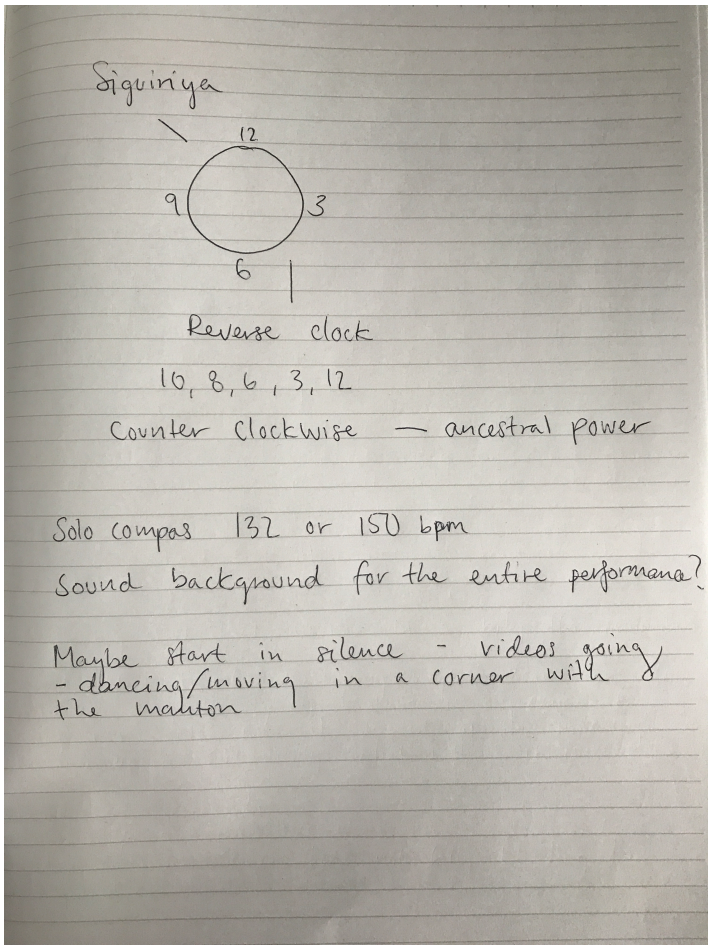 Siguiriya
12
9 3
6
Reverse clock
10, 8, 6, 3, 12
Counter Clockwise — ancestral power
Solo compas 132 or 150 bpm
Sound background for the entire performance?
Maybe start in silence - videos going
- dancing/moving in a corner with
the manton